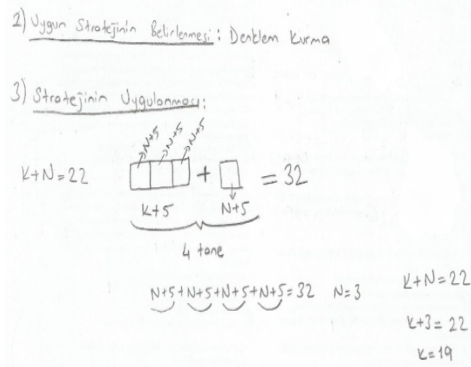 2) Uygun Stratejinin Belirlenmesi: Denklem Kurma
3) Stratejinin Uygulanması:
N+5 N+5 N+5
K+N=22 + = 32
K+5 N+5
4 tane
N+5+N+5+N+5+N+5=32 N=3
K+N=22
K+3=22
K=19